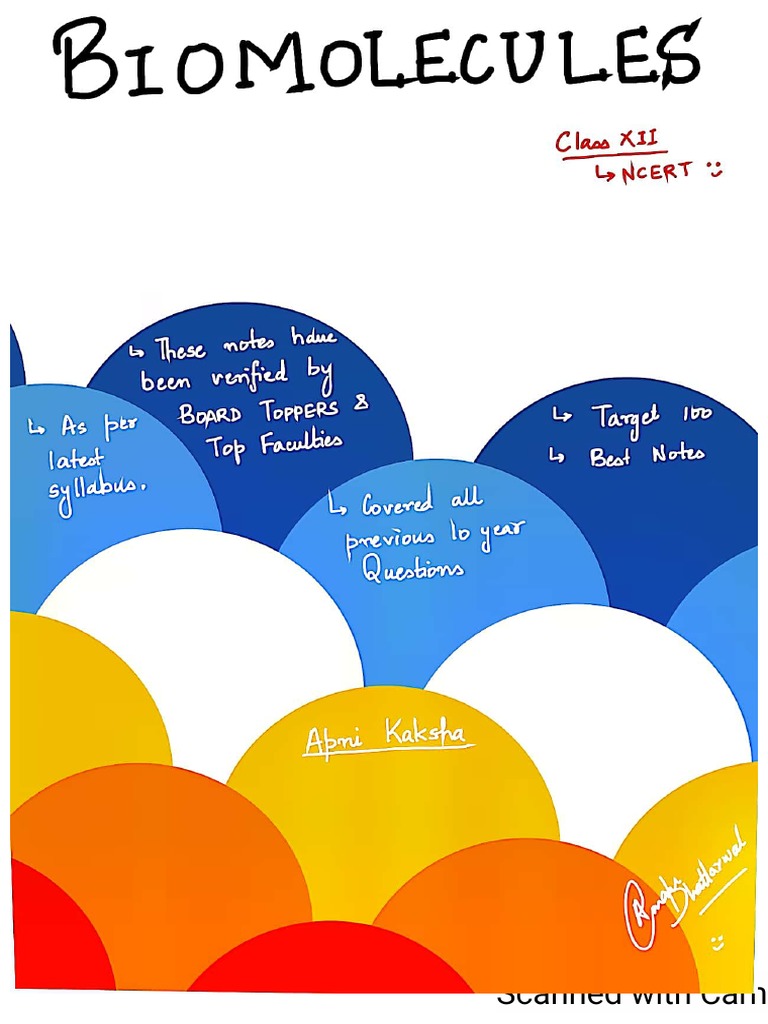 BIOMOLECULES
Class XII
↳ NCERT :)
↳ These notes have
been verified by
BOARD TOPPERS &
Top Faculties
↳ As per
latest
syllabus.
↳ Target 100
↳ Best Notes
↳ Covered all
previous 10 year
Questions
Apni Kaksha
Bhattarwal
:)
Scanned with Cam